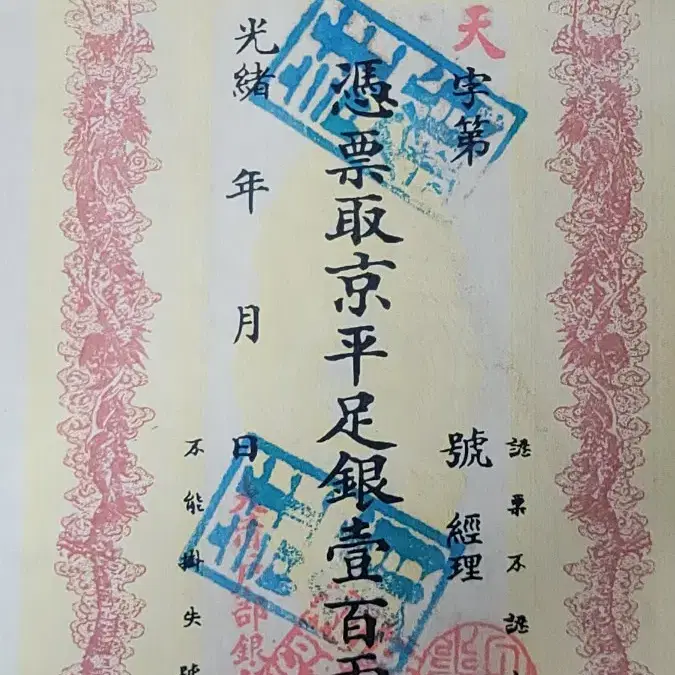 認票不認
天字第號經理
憑票取京平足銀壹百兩
光緒年月日
大清戶部銀
不能掛失號